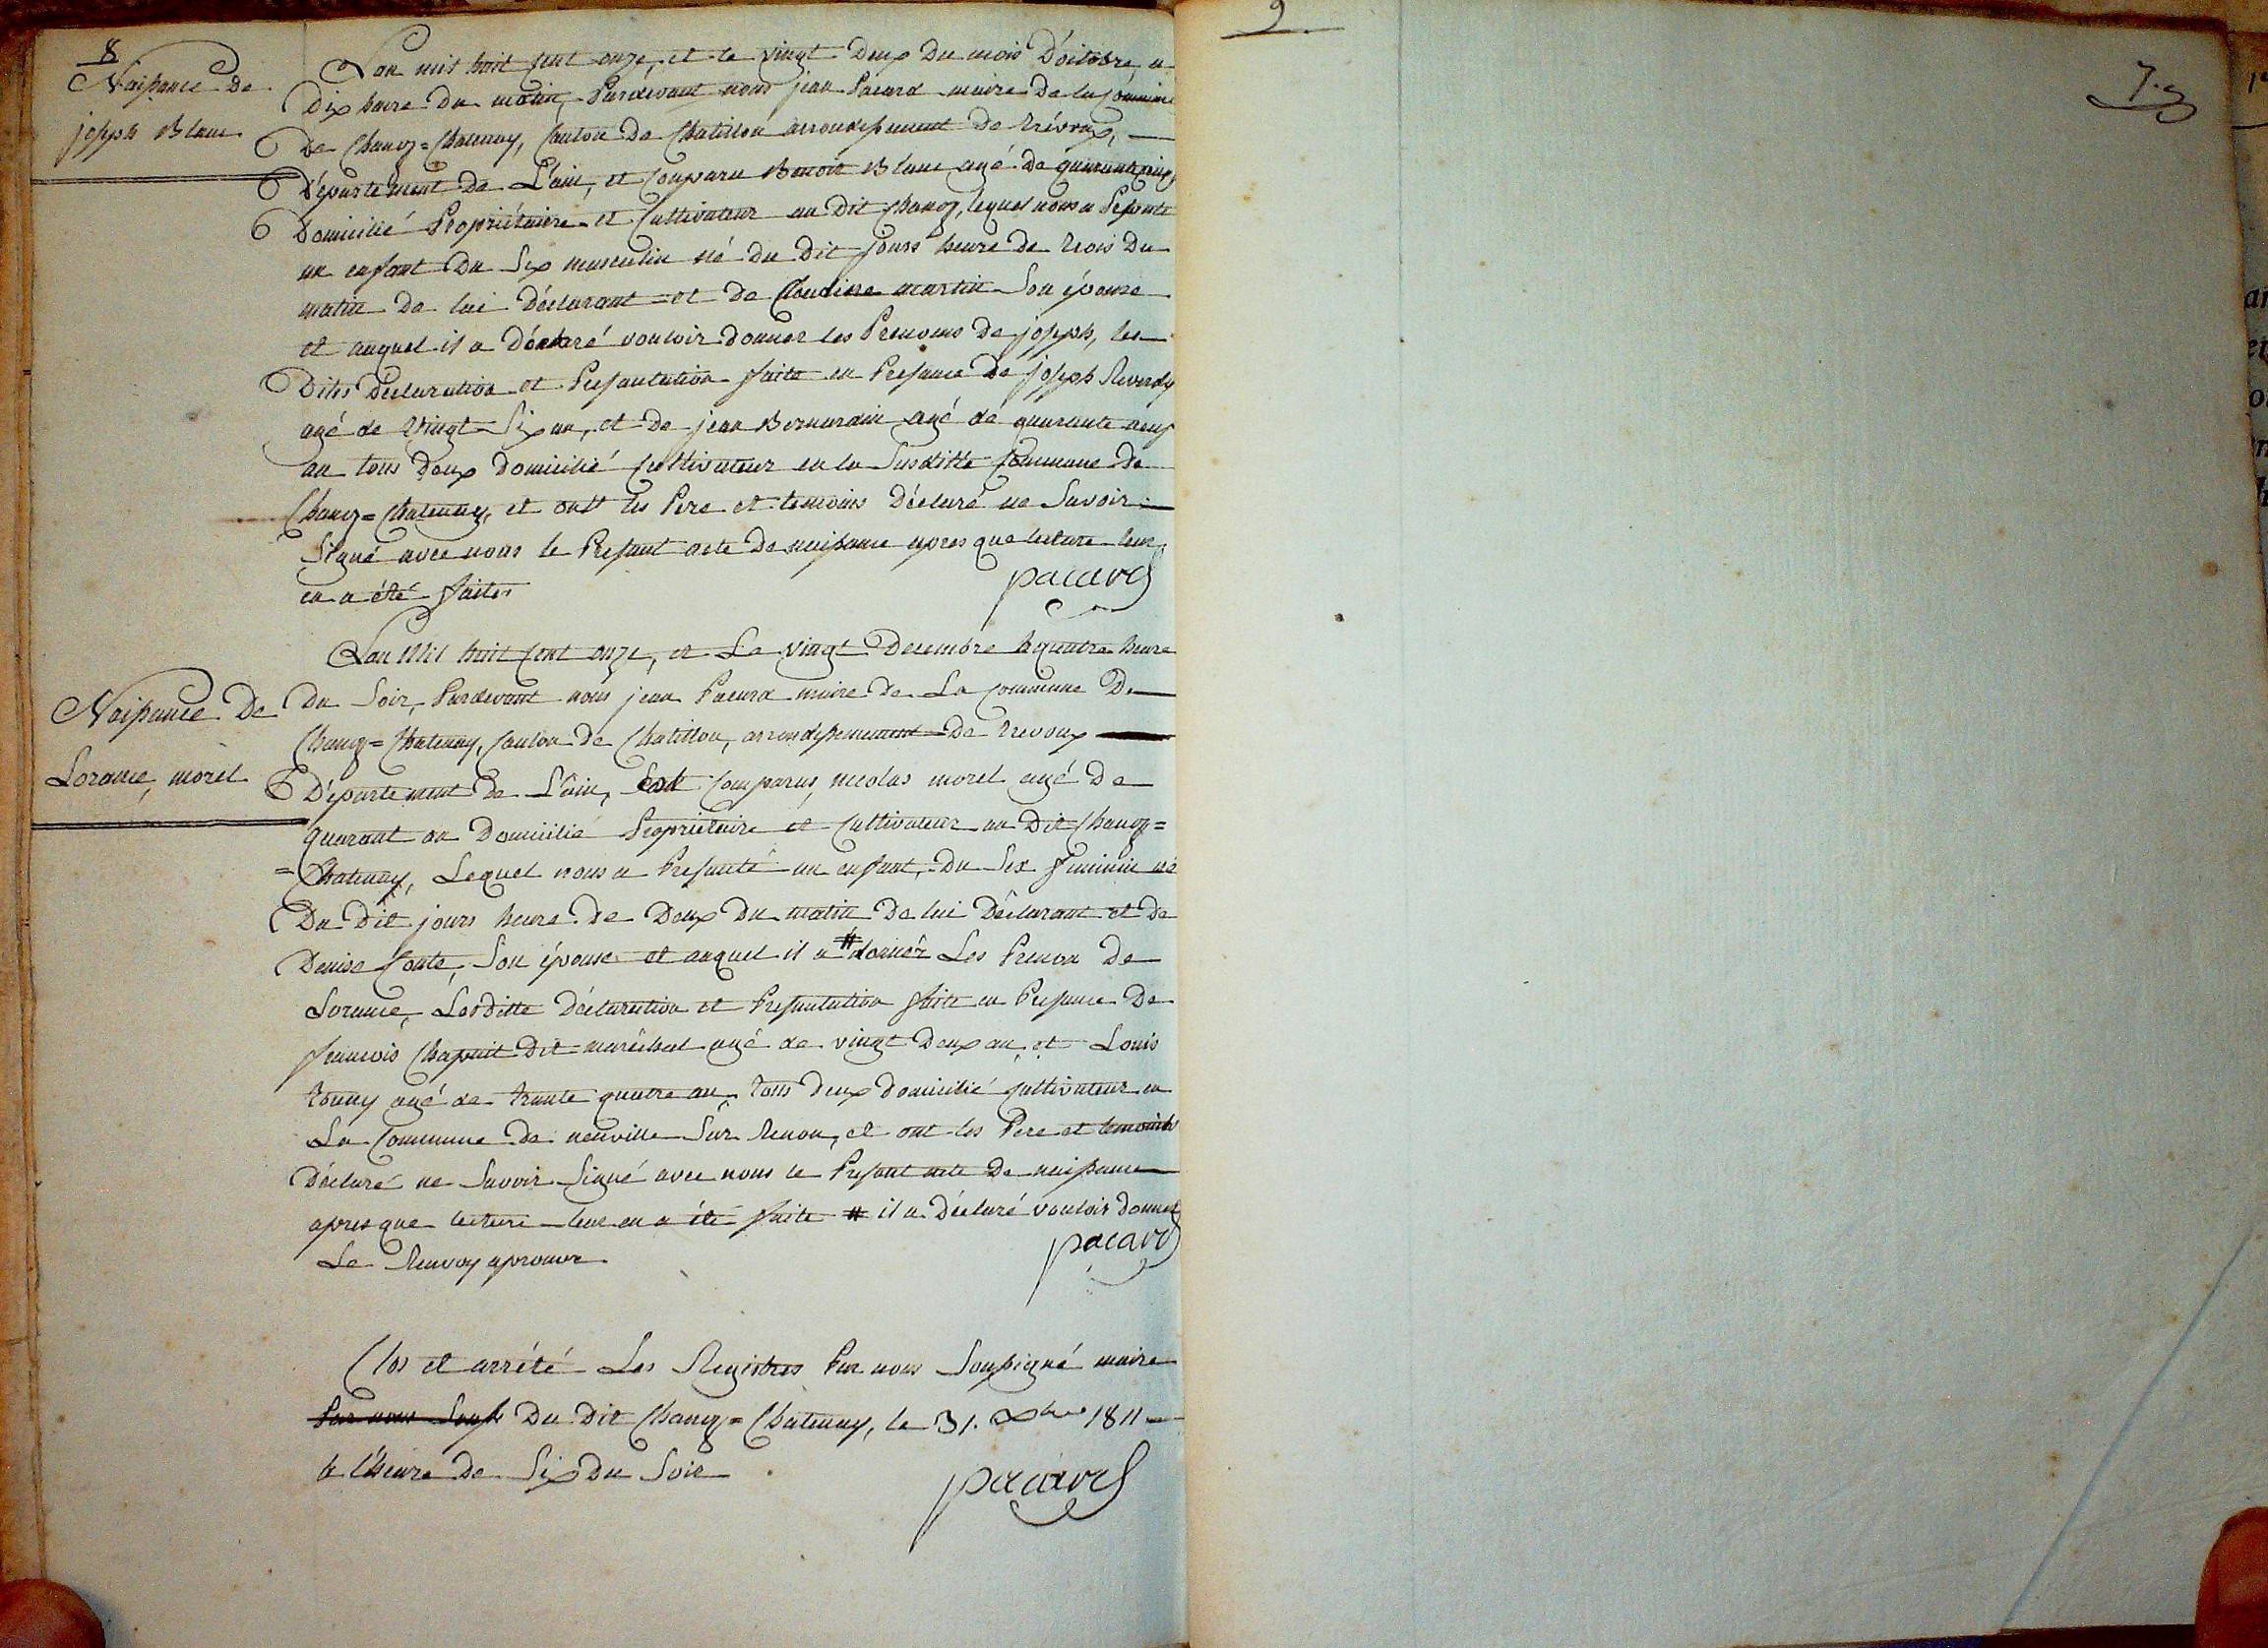 8
Naissance de
joseph Blanc
Lan mil huit cent onze, et le vingt Deux du mois D'octobre, a
Dix heure du matin, Pardevant nous jean Pacard maire De la commune
De Chanoz=Chatenay, Canton de Chatillon arrondissement de trévoux,
Département de L'ain, et Comparu Benoit Blanc agé de quarante cinq
Domicilié Propriétaire et Cultivateur au Dit Chanoz, lequel nous a Pésenté
un enfant du Sex masculin né du Dit jours heure de trois Du
matin de lui Déclarant et de Claudine martin Son épouse
et auquel il a Déclaré vouloir donner les Prenoms de joseph, les
Dites Déclaration et Présantation faite en Présance de joseph Reverdy
agé de vingt Six an, et de jean Bernardin agé de quarante neuf
an tous deux domicilié Cultivateur en la Susditte Commune de
Chanoz=Chatenay, et ont les Pere et temoins Déclaré ne Savoir
Signé avec nous le Présant acte de naissance apres que lecture leur
en a été faites
pacard
Naissance De
Lorance, morel
Lan Mil huit Cent onze, et Le vingt Decembre à quatre heure
Du Soir, Pardevant nous jean Pacard maire de La Commune De
Chanoz=Chatenay, Canton de Chatillon, arrondissement De trevoux
Département de L'ain, Est Comparus, nicolas morel agé De
quarant an Domicilié Propriétaire et Cultivateur au Dit Chanoz=
=Chatenay, Lequel nous a Présanté un enfant, Du Sex feminin né
Du Dit jours heure de Deux Du matin De lui Déclarant et De
Denise Conte, Son épouse et auquel il a # donner Les Prenon De
Lorance, Lesditte Déclaration et Présantation faite en Présance De
francois Chapuit Dit maréchal agé de vingt Deux an, et Louis
tonny agé de trante quatre an tous deux domicilié Cultivateur en
La Commune de neuville Sur Renon, et ont les Pere et temoins
Déclaré ne Savoir Signé avec nous le Présant acte De naissance
apres que lecture leur en a été faite # il a Déclaré vouloir donner
Le Renvoy aprouver
pacard
Clos et arrété Les Registres Par nous Soussigné maire
Par nous Souss Du Dit Chanoz=Chatenay, le 31. Xbre 1811
à l'heure de Six Du Soir
pacard
9